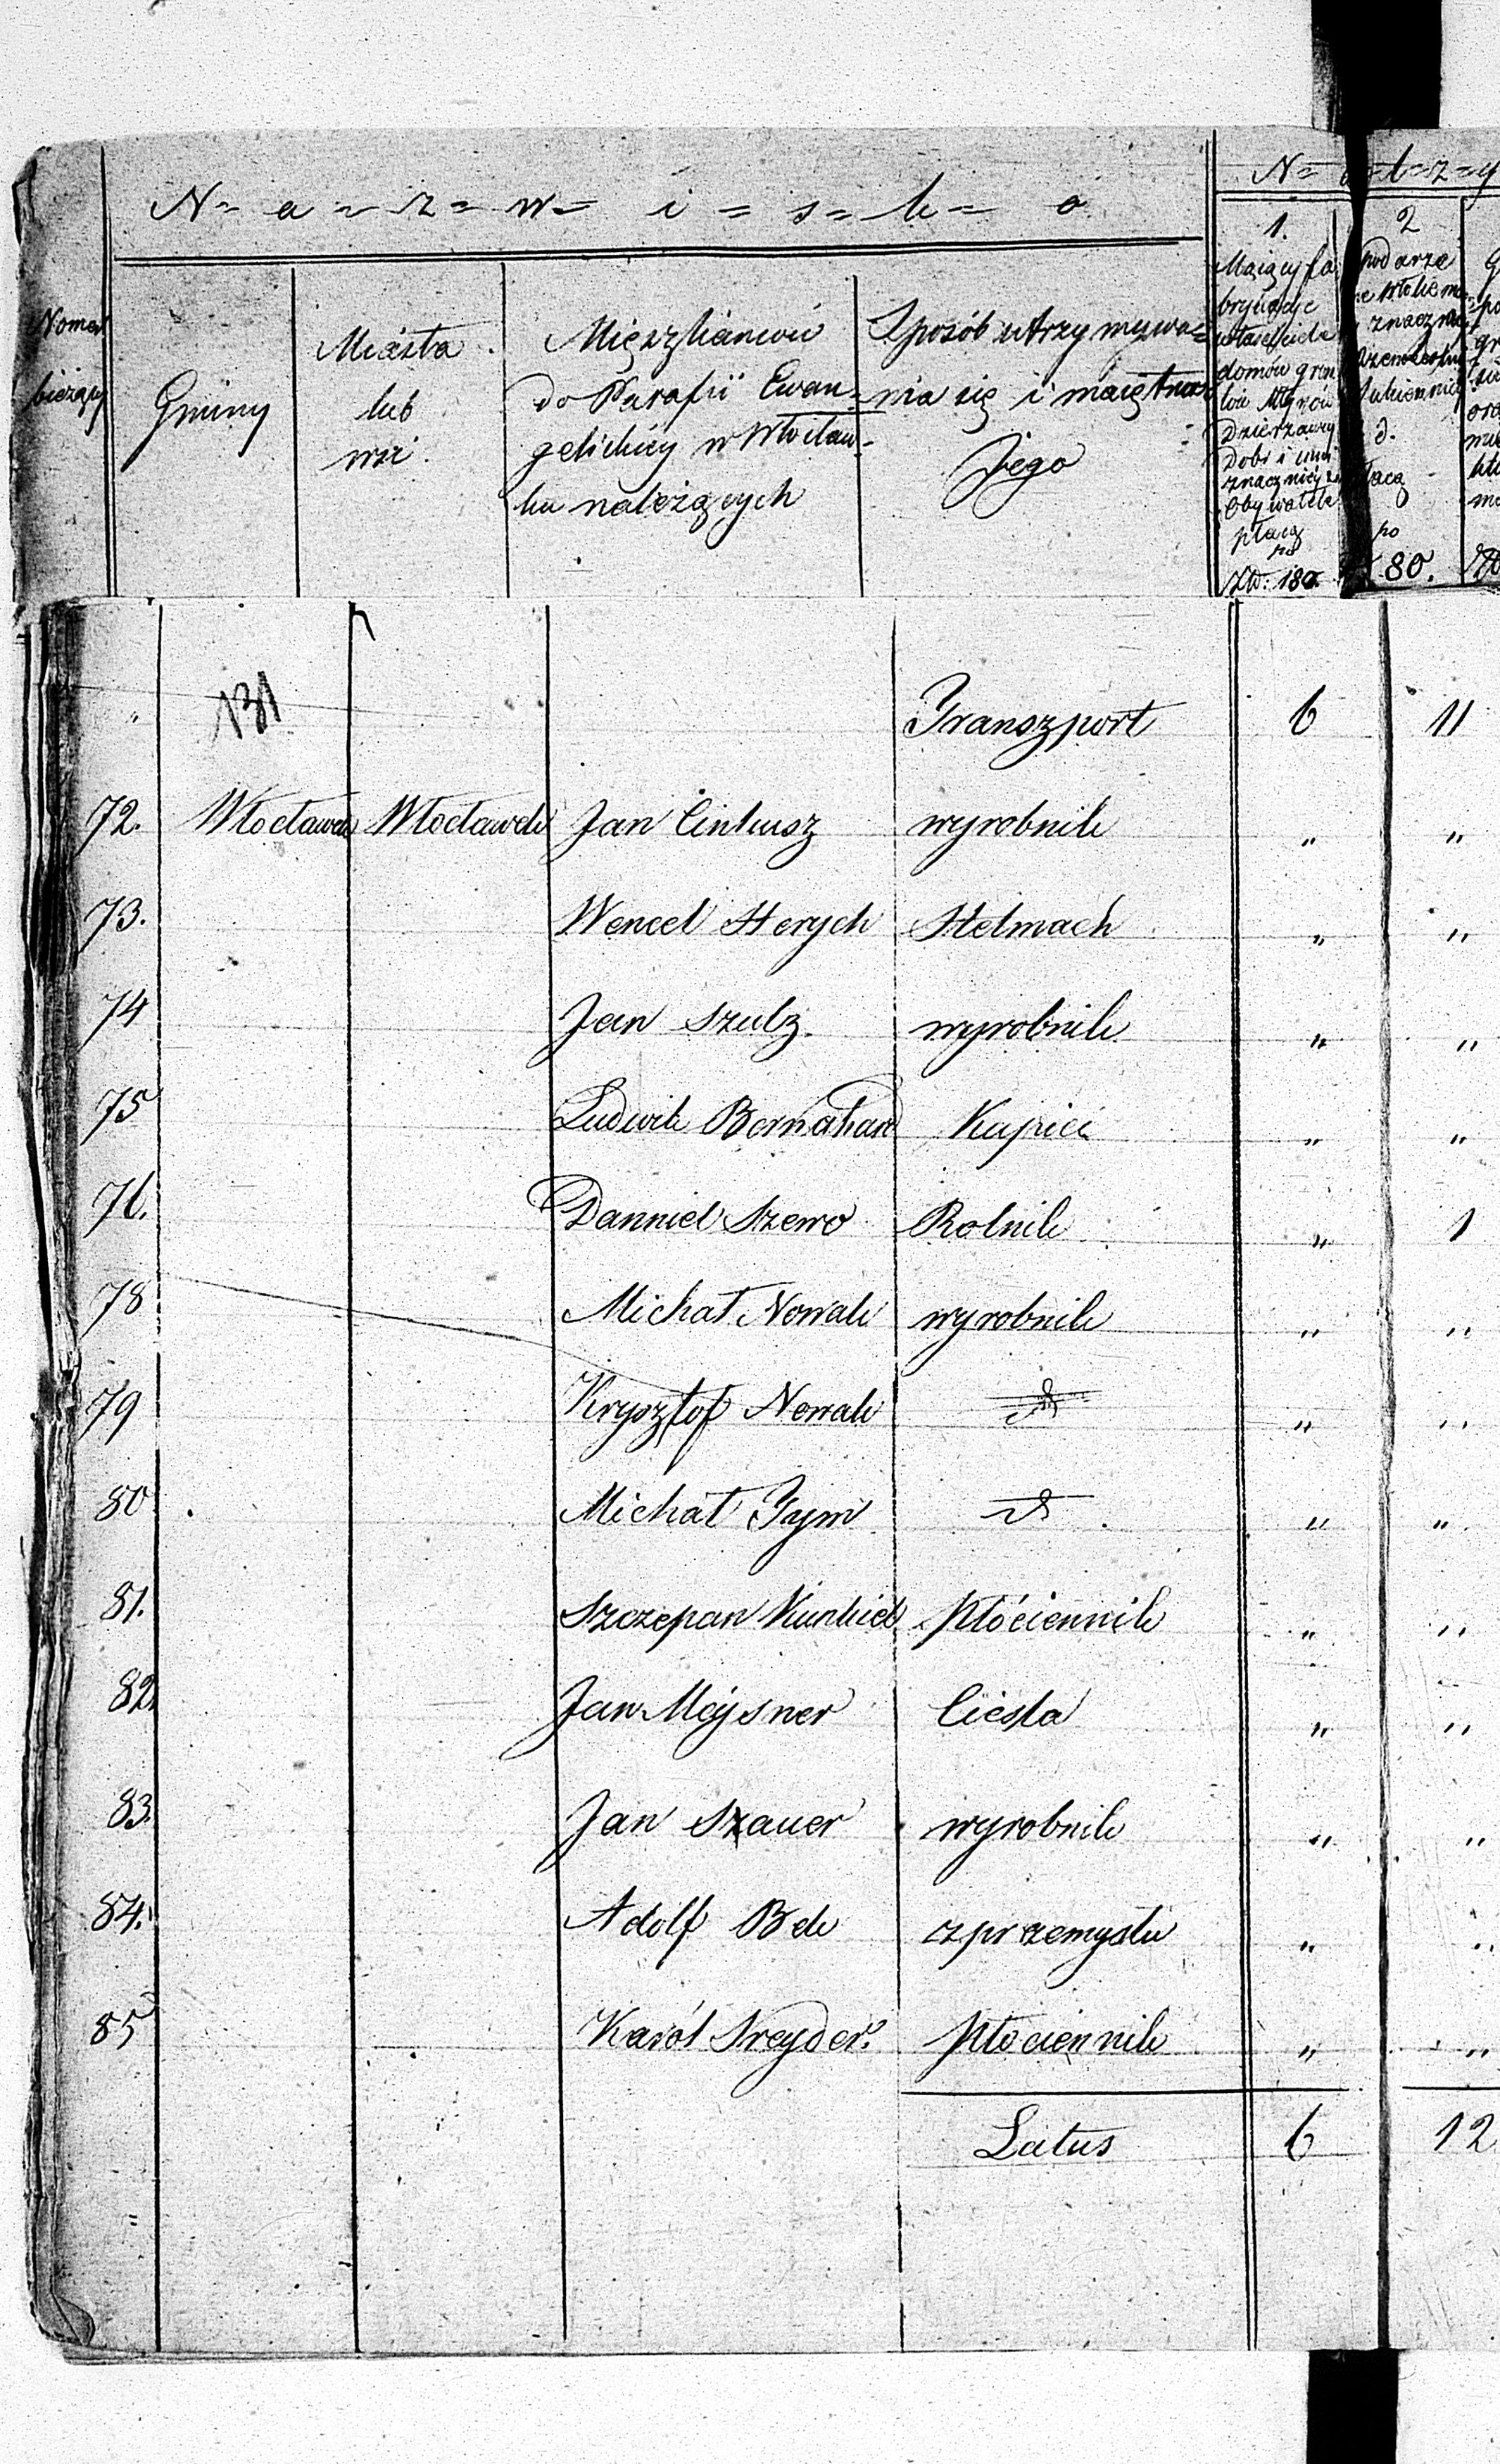 N=a=z=w=i=s=k=o
Numer
bieżący
Gminy
Miasta
lub
wsi
Mieszkańców
do Parafii Ewan=
gelickiey w Włocław-
ku należących
Sposób utrzymywa=
nia się i maiętność
Jego
1.
Maiący fa
brykacje
właściciele
domów grun
tów Młynów
Dzierżawcy
Dobr i inni
znaczniejsi
Obywatele
płacą
po
Złt: 180.
2
płacą
po
80.
131
Transzport 6 11
72. Włocławek Włocławek Jan Cinkusz wyrobnik " "
73. Wencel Herych Stelmach " "
74 Jan Szulz. wyrobnik " "
75 Ludwik Bernahard Kupiec " "
76. Danniel Szewo Rolnik " 1
78 Michał Nowak wyrobnik " "
79 Krysztof Nowak " "
80 Michał Tym " "
81. Szczepan Kunkiel Płóciennik " "
82. Jan Mejsner Cieśla " "
83. Jan Szauer wyrobnik " "
84. Adolf Bek z przemysłu " "
85 Karól Sreyder. Płóciennik " "
Latus 6 12